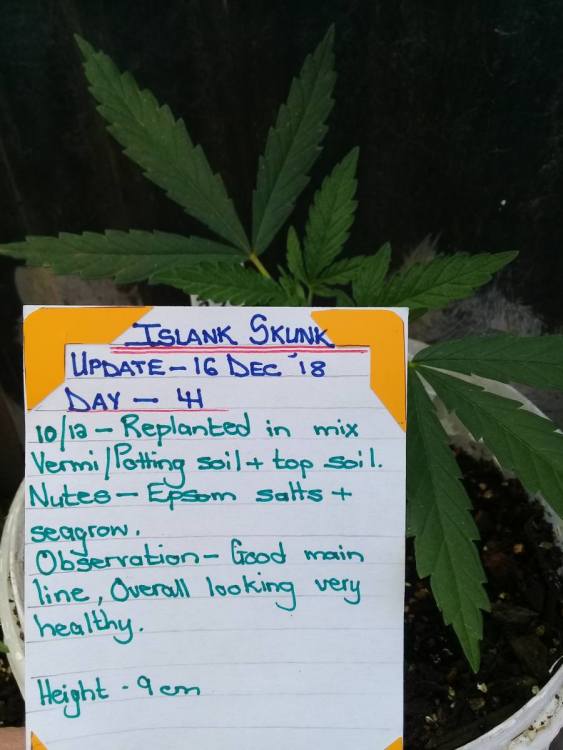 ISLANK SKUNK
UPDATE - 16 DEC '18
DAY - 41
10/12 - Replanted in mix
Vermi/Potting soil + top soil.
Nutes - Epsom salts +
seagrow.
Observation - Good main
line, Overall looking very
healthy.
Height - 9 cm